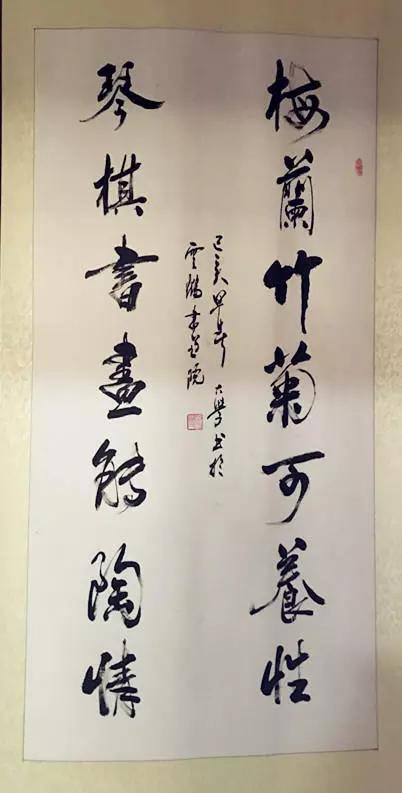 梅蘭竹菊可養性
琴棋書畫能陶情
己亥早春大學书於
雲鶴書畫院